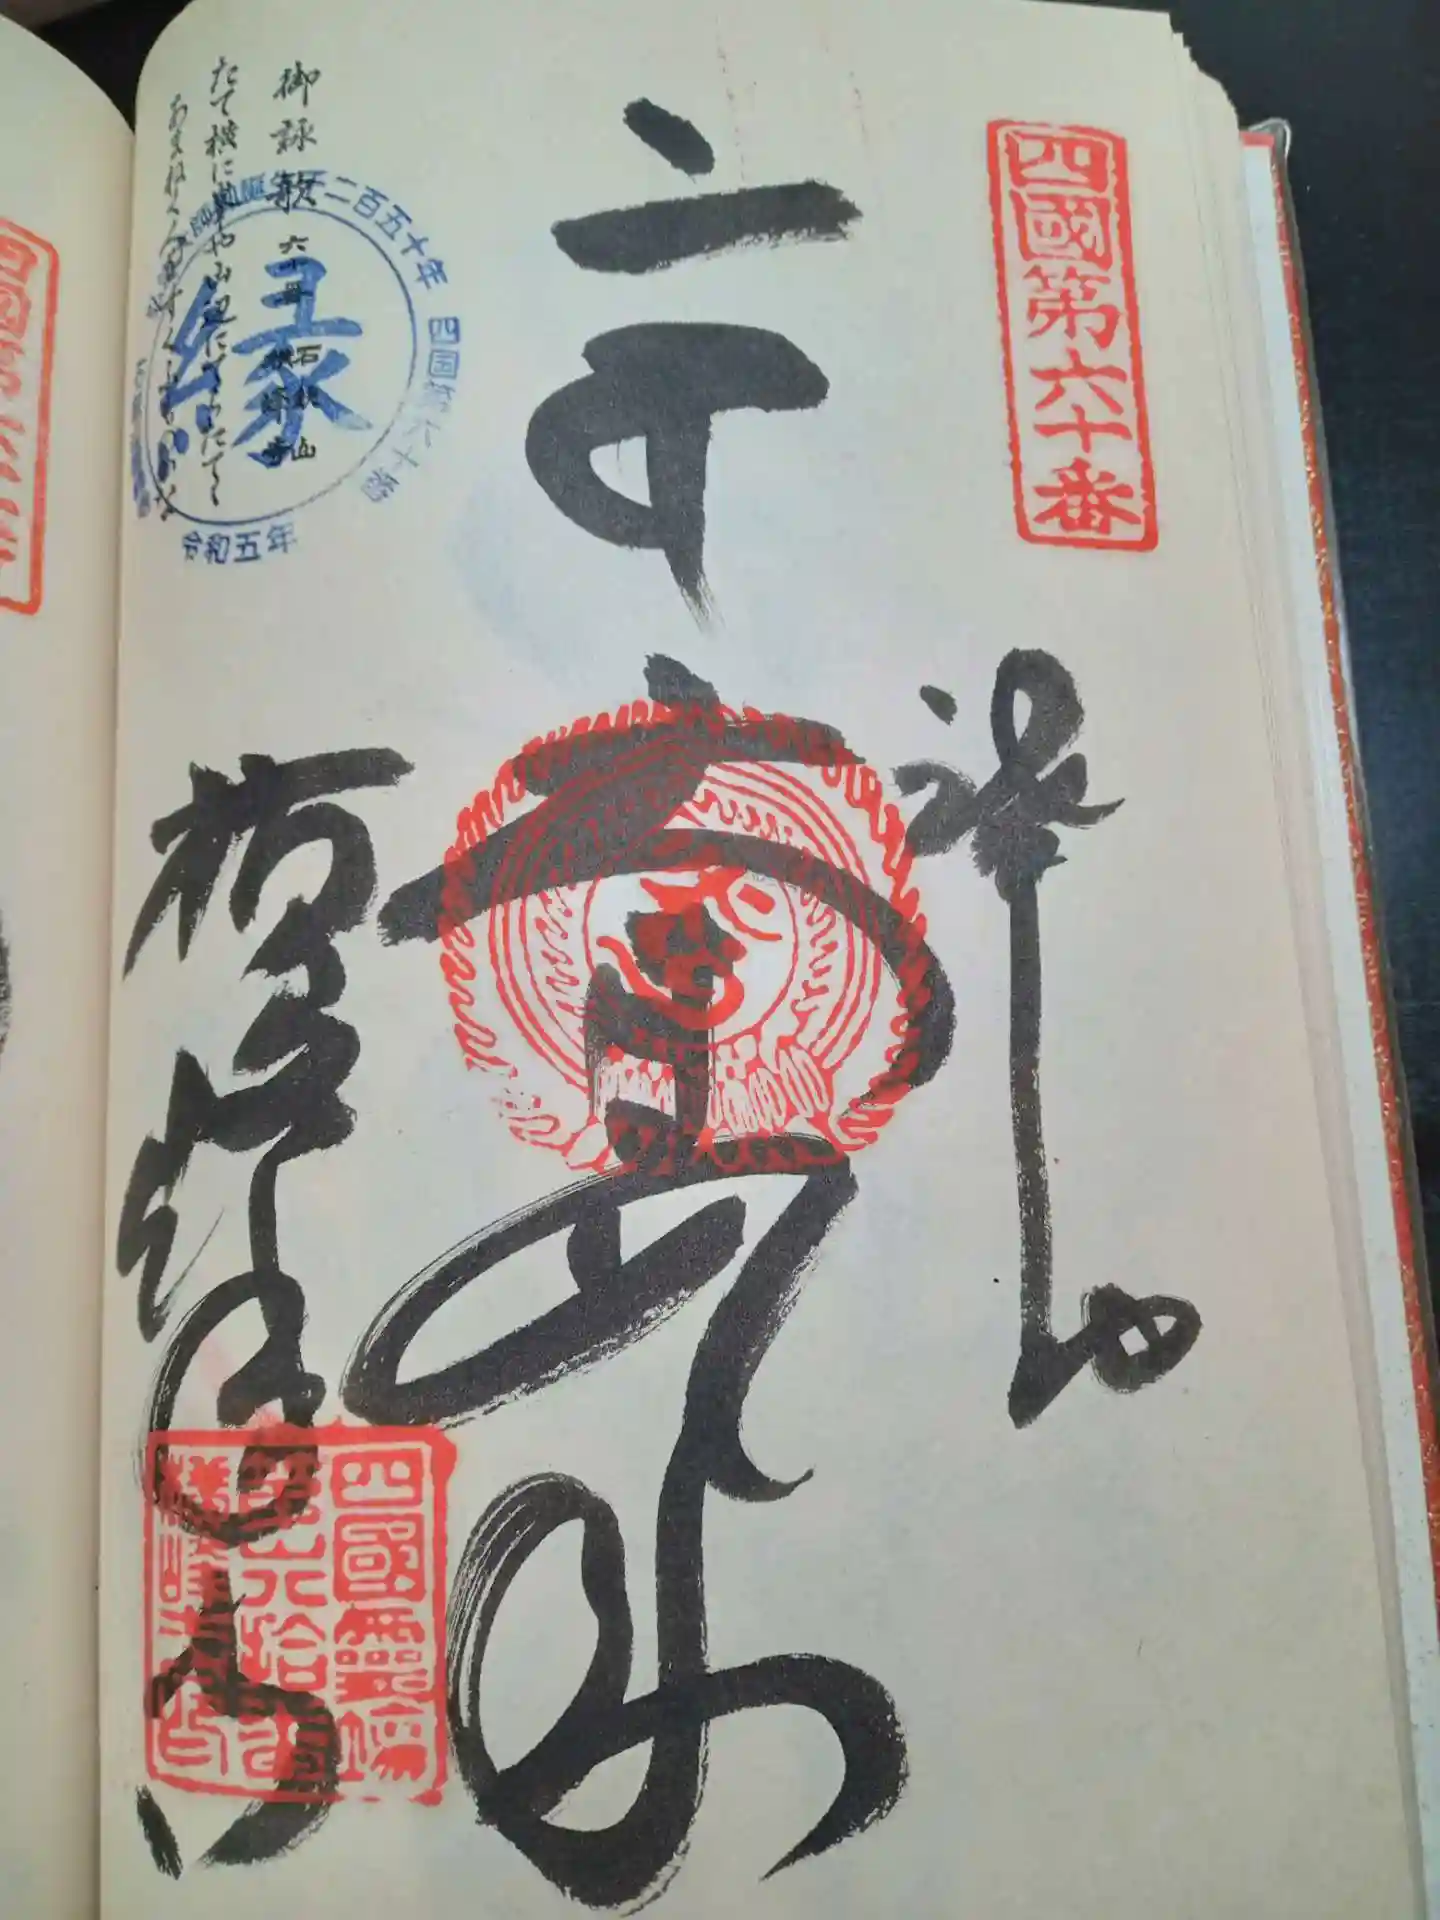 四國第六十番
奉拝
大日如来
横峰寺
御詠歌 六十番 石鈇山 横峰寺
たて横に峰や山辺に寺たてて
あまねく人をすくふものかな
二百五十年
四国第六十番
縁
令和五年
四國霊場
第六拾番
横峰寺